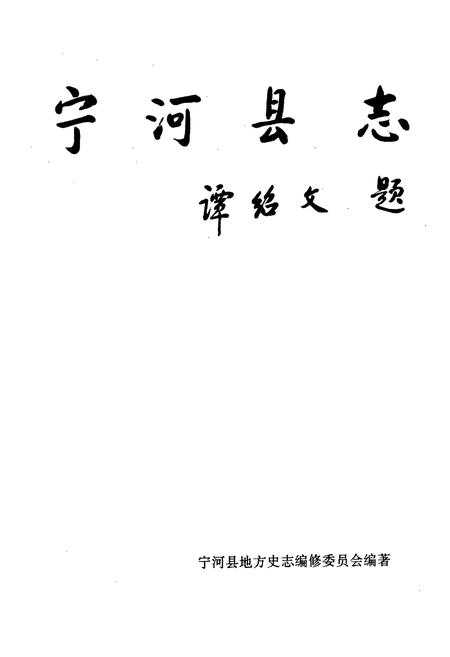 宁河县志
谭绍文 题
宁河县地方史志编修委员会编著